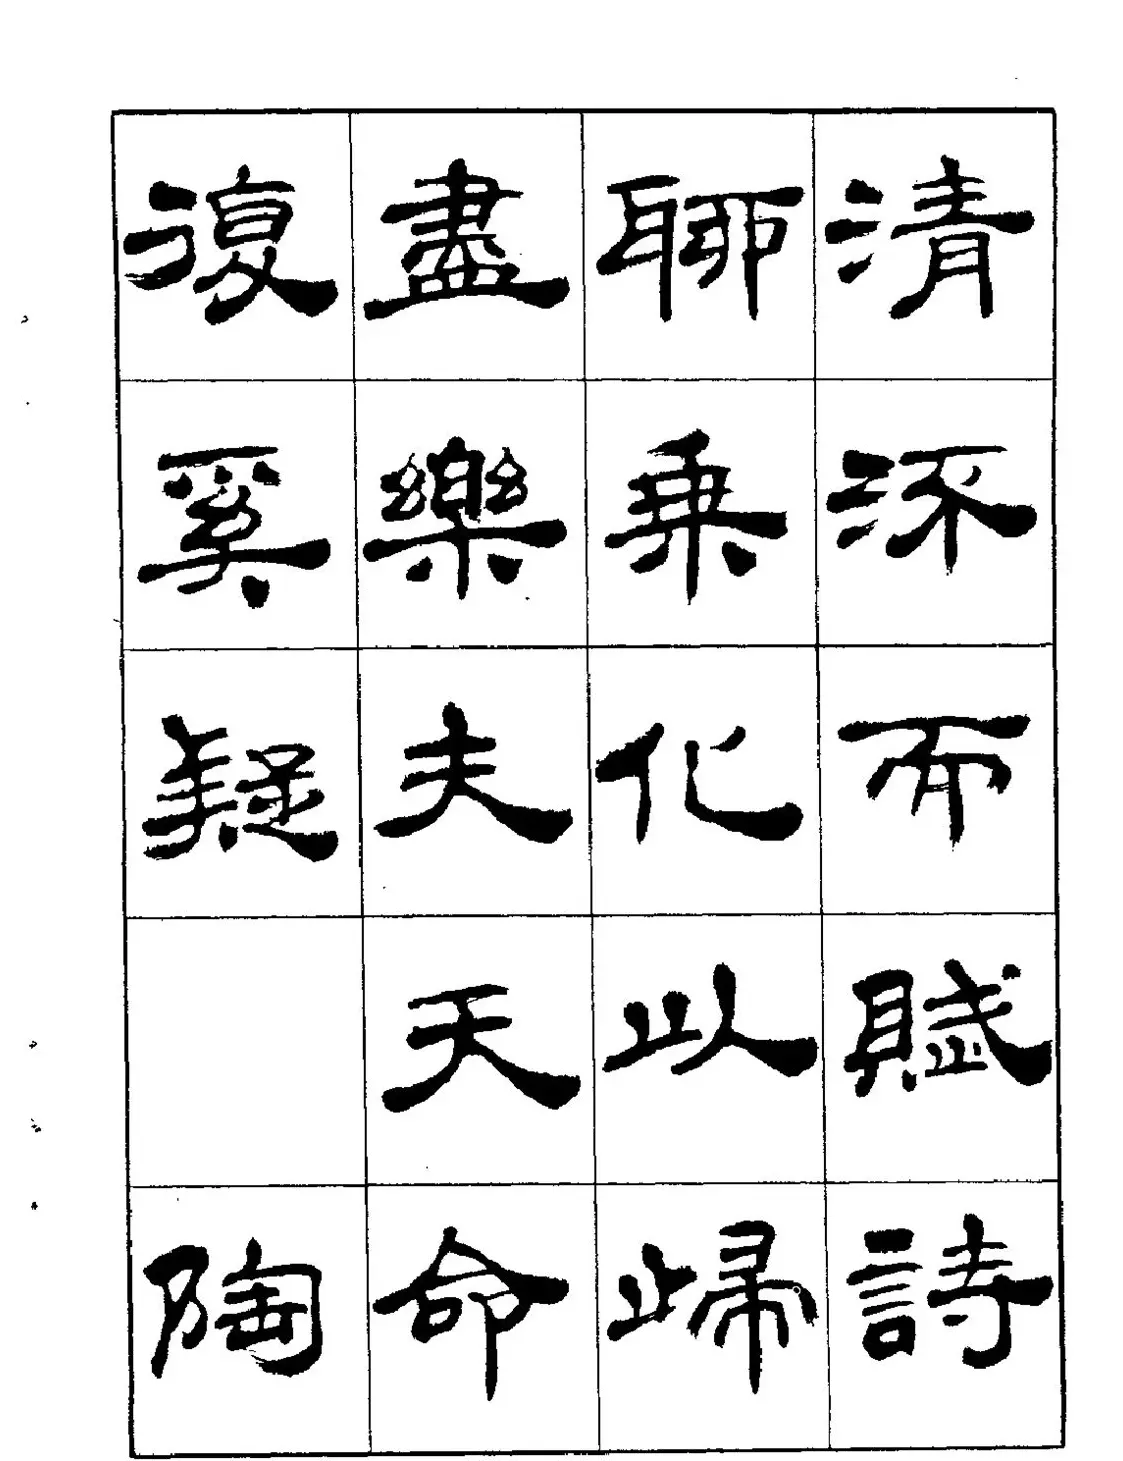 清流而賦詩
聊乘化以歸
盡樂夫天命
復奚疑 陶